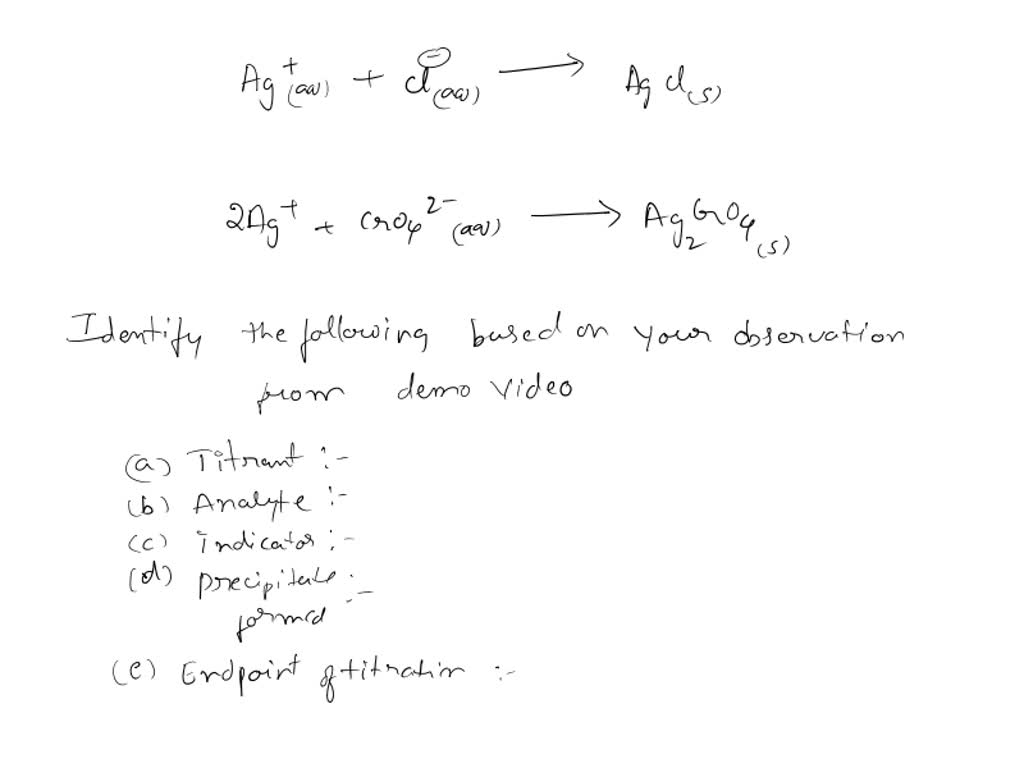 Ag⁺(aq) + Cl⁻(aq) ⟶ AgCl(s)
2Ag⁺ + CrO₄²⁻(aq) ⟶ Ag₂CrO₄(s)
Identify the following based on your observation
from demo video
(a) Titrant :-
(b) Analyte :-
(c) indicator :-
(d) precipitate :-
formed
(e) Endpoint of titration :-